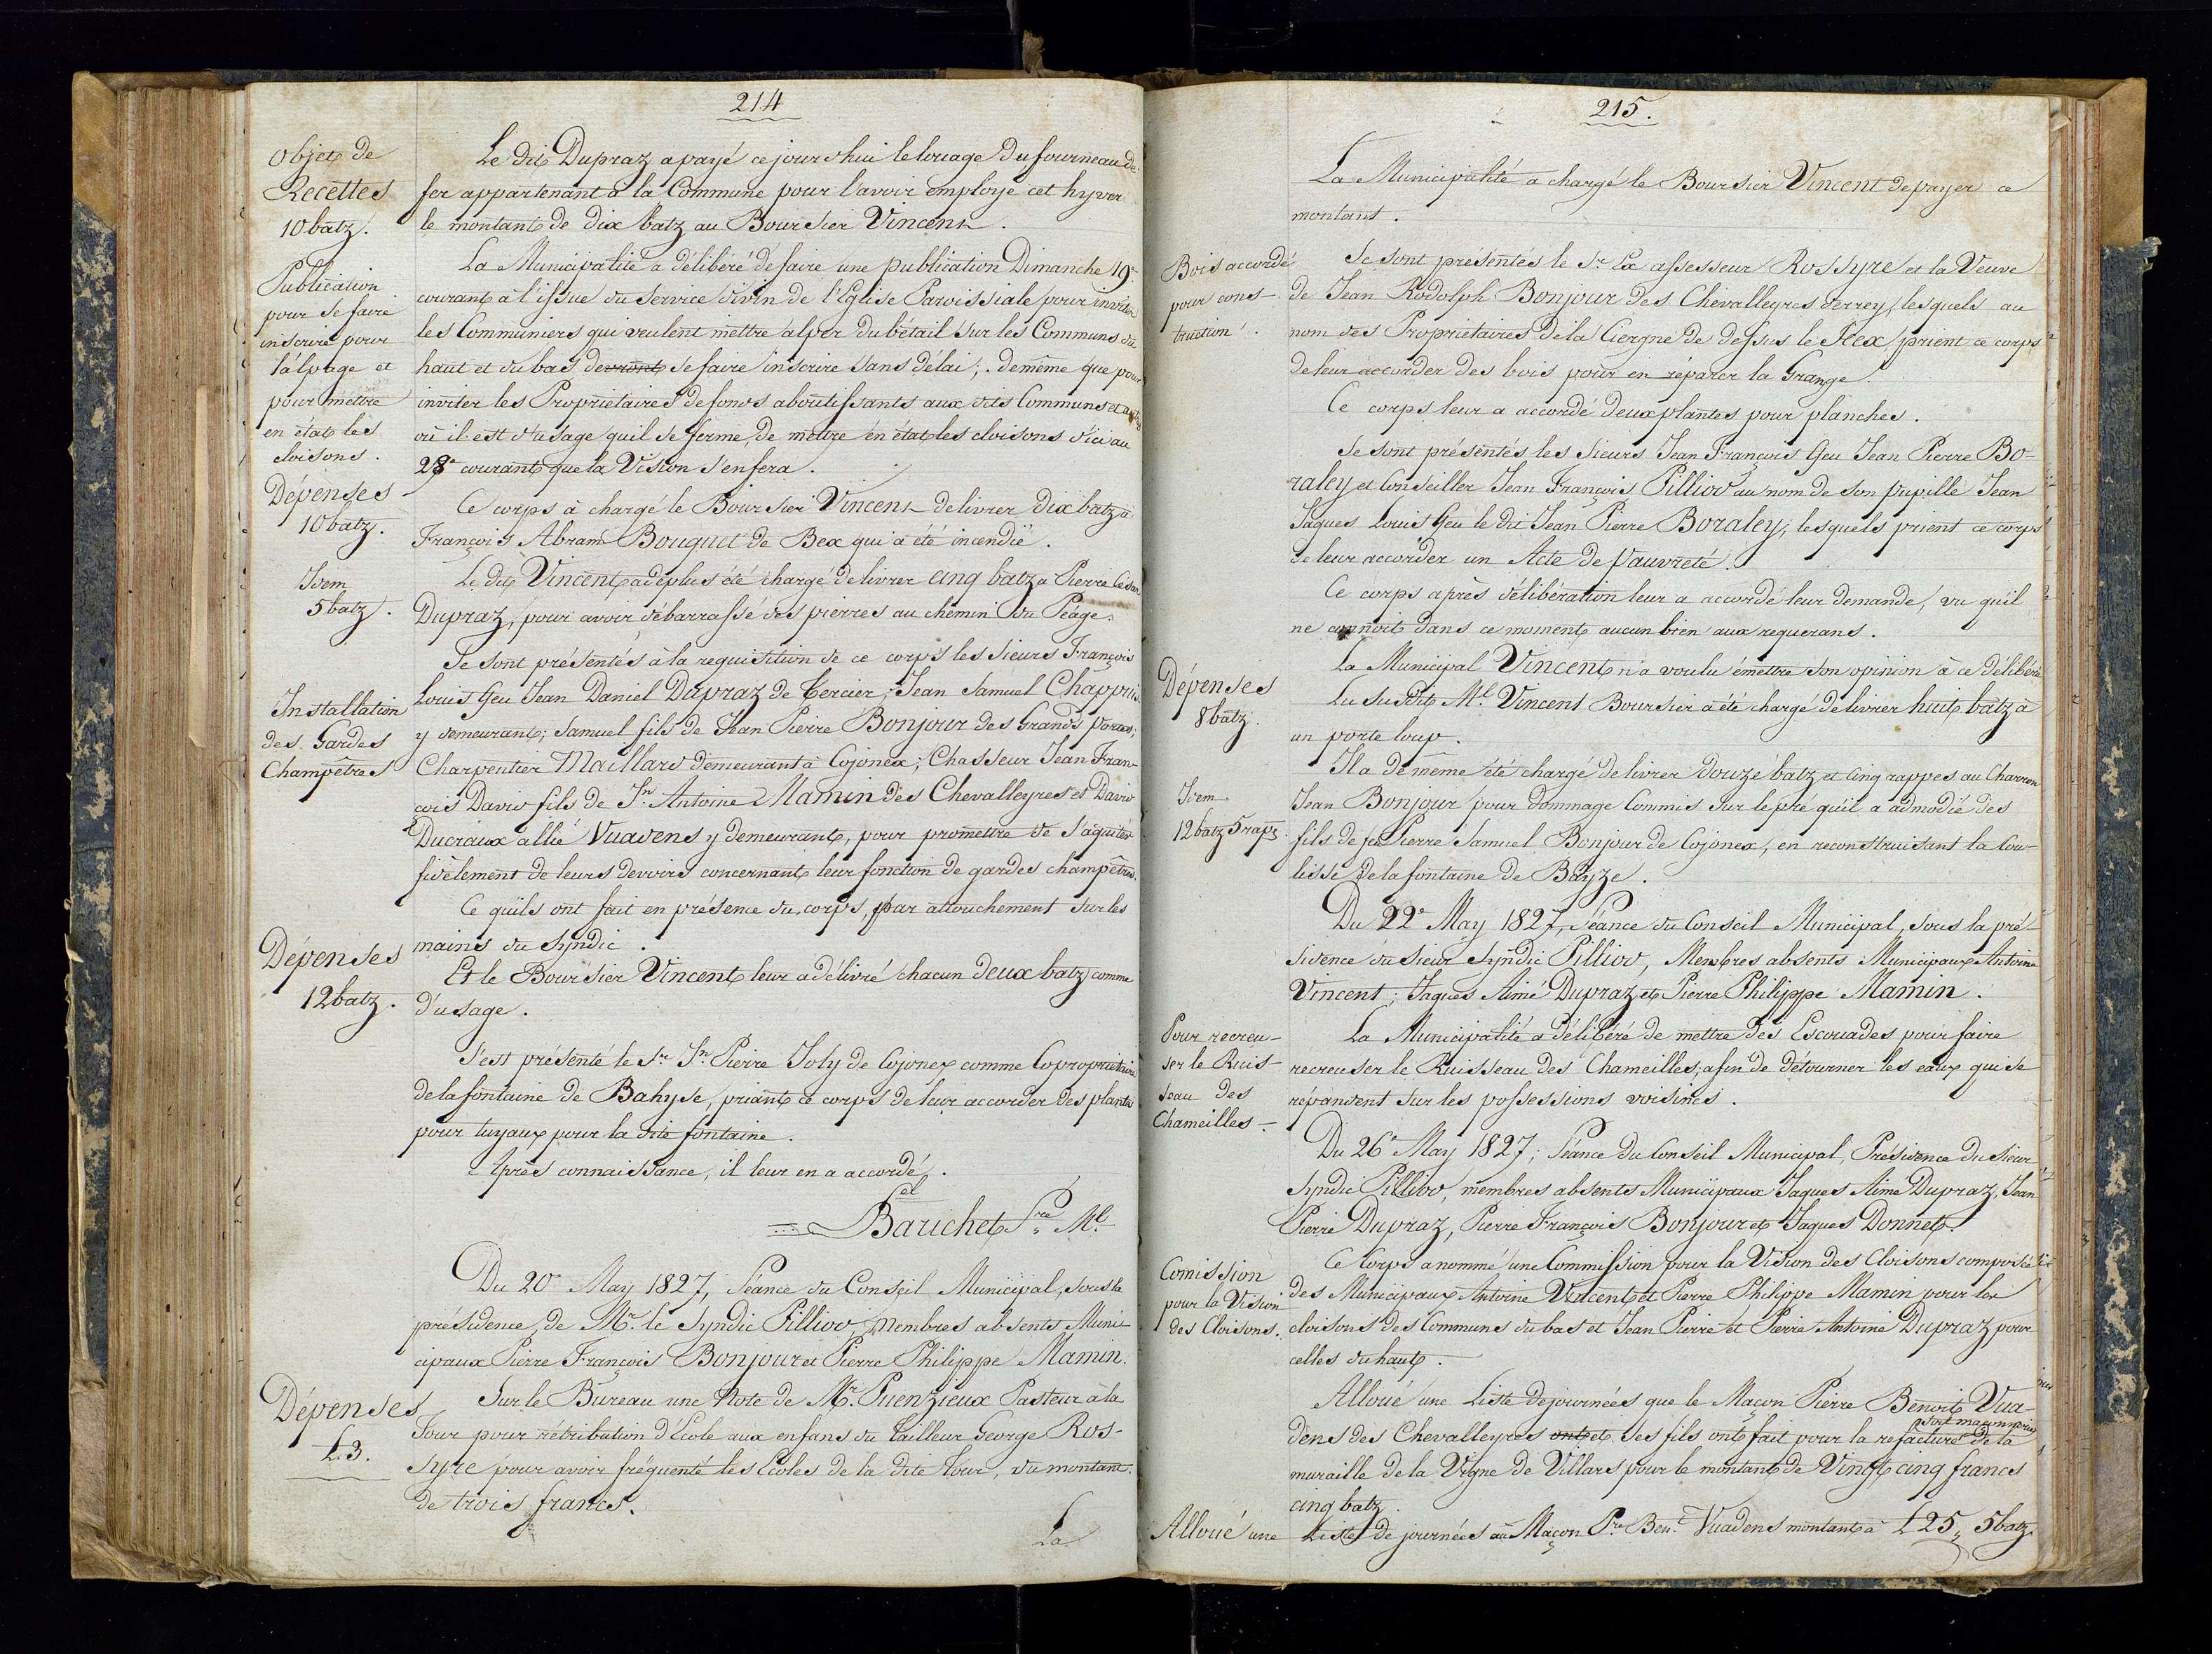 214
Objet de
Recettes
10 batz.
Le dit Dupraz a payé ce jourd'hui le louage du fourneau de
fer appartenant à la Commune pour l'avoir employé cet hyver
le montant de dix batz au Boursier Vincent.
Publication
pour se faire
inscrire pour
l'alpage et
pour mettre
en état les
cloisons.
La Municipalité a délibéré de faire une publication Dimanche 19e
courant à l'issue du service divin de l'Eglise Paroissiale pour inviter
les Communiers qui veulent mettre alper du bétail sur les Communs du
haut et du bas devront se faire inscrire sans délai; de même que pour
inviter les Propriétaires de fonds aboutissants aux dits Communs et
où il est d'usage qu'il se ferme, de mettre en état les cloisons d'ici au
28e courant que la Vision s'en fera.
Dépenses
10 batz.
Ce corps à chargé le Boursier Vincent de livrer dix batz à
François Abram Bouquet de Bex qui a été incendié.
Idem
5 batz.
Le dit Vincent a de plus été chargé de livrer cinq batz à Pierre César
Dupraz, pour avoir débarrassé des pierres au chemin du Péage.
Installation
des Gardes
Champêtres
Se sont présentés à la requisition de ce corps les Sieurs François
Louis feu Jean Daniel Dupraz de Tercier; Jean Samuel Chappuis
y demeurant; Samuel fils de Jean Pierre Bonjour des Grands
Charpentier Maillard demeurant à Cojonex; Chasseur Jean Fran-
çois David fils de Jn. Antoine Mamin des Chevalleyres et David
Ducraux allié Vuadens y demeurant, pour promettre de s'aquiter
fidèlement de leurs devoirs concernant leur fonction de gardes champêtres.
Ce qu'ils ont fait en présence du corps, par attouchement sur les
mains du Syndic.
Dépenses
12 batz.
Et le Boursier Vincent leur a délivré chacun deux batz comme
d'usage.
S'est présenté le Sr. Jn. Pierre Joly de Cojonex comme Copropriétaire
de la fontaine de Bahyse, priant ce corps de leur accorder des plantes
pour tuyaux pour la dite fontaine.
Après connaissance, il leur en a accordé.
Barichet Sre. Ml.
Du 20e May 1827, Séance du Conseil Municipal, sous la
présidence de Mr. le Syndic Pilliod, Membres absents Muni-
cipaux Pierre François Bonjour et Pierre Philippe Mamin.
Dépenses
L. 3.
Sur le Bureau une Note de Mr. Puenzieux Pasteur à la
Tour pour rétribution d'Ecole aux enfans du Tailleur George Ros-
syre pour avoir fréquenté les Ecoles de la dite Tour, du montant
de trois francs.
La
215.
La Municipalité a chargé le Boursier Vincent de payer ce
montant.
Bois accordé
pour cons-
truction.
Se sont présentés le Sr. Ex assesseur Rossyre et la Veuve
de Jean Rodolph Bonjour des Chevalleyres derrey, lesquels au
nom des Propriétaires de la Ciergne de dessus le Scex prient ce corps
de leur accorder des bois pour en réparer la Grange.
Ce corps leur a accordé deux plantes pour planches.
Se sont présentés les Sieurs Jean François feu Jean Pierre Bo-
raley et Conseiller Jean François Pilliod au nom de son pupille Jean
Jaques Louis feu le dit Jean Pierre Boraley, lesquels prient ce corps
de leur accorder un Acte de Pauvreté.
Ce corps après délibération leur a accordé leur demande, vu qu'il
ne connoit dans ce moment aucun bien aux requerans.
La Municipal Vincent n'a voulu émettre son opinion à ce délibéré
Dépenses
8 batz.
Lu susdit Ml. Vincent Boursier a été chargé de livrer huit batz à
un porte loup.
Idem
12 batz 5 raps.
Il a de même été chargé de livrer douze batz et cinq rappes au Charron
Jean Bonjour pour dommage Commis sur le pré qu'il a admodié des
fils de feu Pierre Samuel Bonjour de Cojonex, en reconstruisant la Cou-
lisse de la fontaine de Bayze.
Du 22e May 1827, Séance du Conseil Municipal, sous la pré-
sidence du Sieur Syndic Pilliod, Membres absents Municipaux Antoine
Vincent; Jaques Aimé Dupraz et Pierre Philippe Mamin.
Pour recreu-
ser le Ruis-
seau des
Chameilles.
La Municipalité a délibéré de mettre des Escouades pour faire
recreuser le Ruisseau des Chameilles, afin de détourner les eaux qui se
répandent sur les possessions voisines.
Du 26e May 1827; Séance du Conseil Municipal, Présidence du Sieur
Syndic Pilliod, membres absents Municipaux Jaques Aimé Dupraz, Jean
Pierre Dupraz, Pierre François Bonjour et Jaques Donnet.
Comission
pour la Vision
des Cloisons.
Ce Corps a nommé une Commission pour la Vision des Cloisons composée
des Municipaux Antoine Vincent et Pierre Philippe Mamin pour les
cloisons des Communs du bas et Jean Pierre et Pierre Antoine Dupraz pour
celles du haut.
Alloué une Liste de journées que le Maçon Pierre Benoit Vua-
dens des Chevalleyres ont et ses fils ont fait pour la refacture de la
muraille de la Vigne de Villars pour le montant de Vingt cinq francs
cinq batz.
Alloué une Liste de journées au Maçon Pre. Ben.t Vuadens montant à L 25, 5 batz.